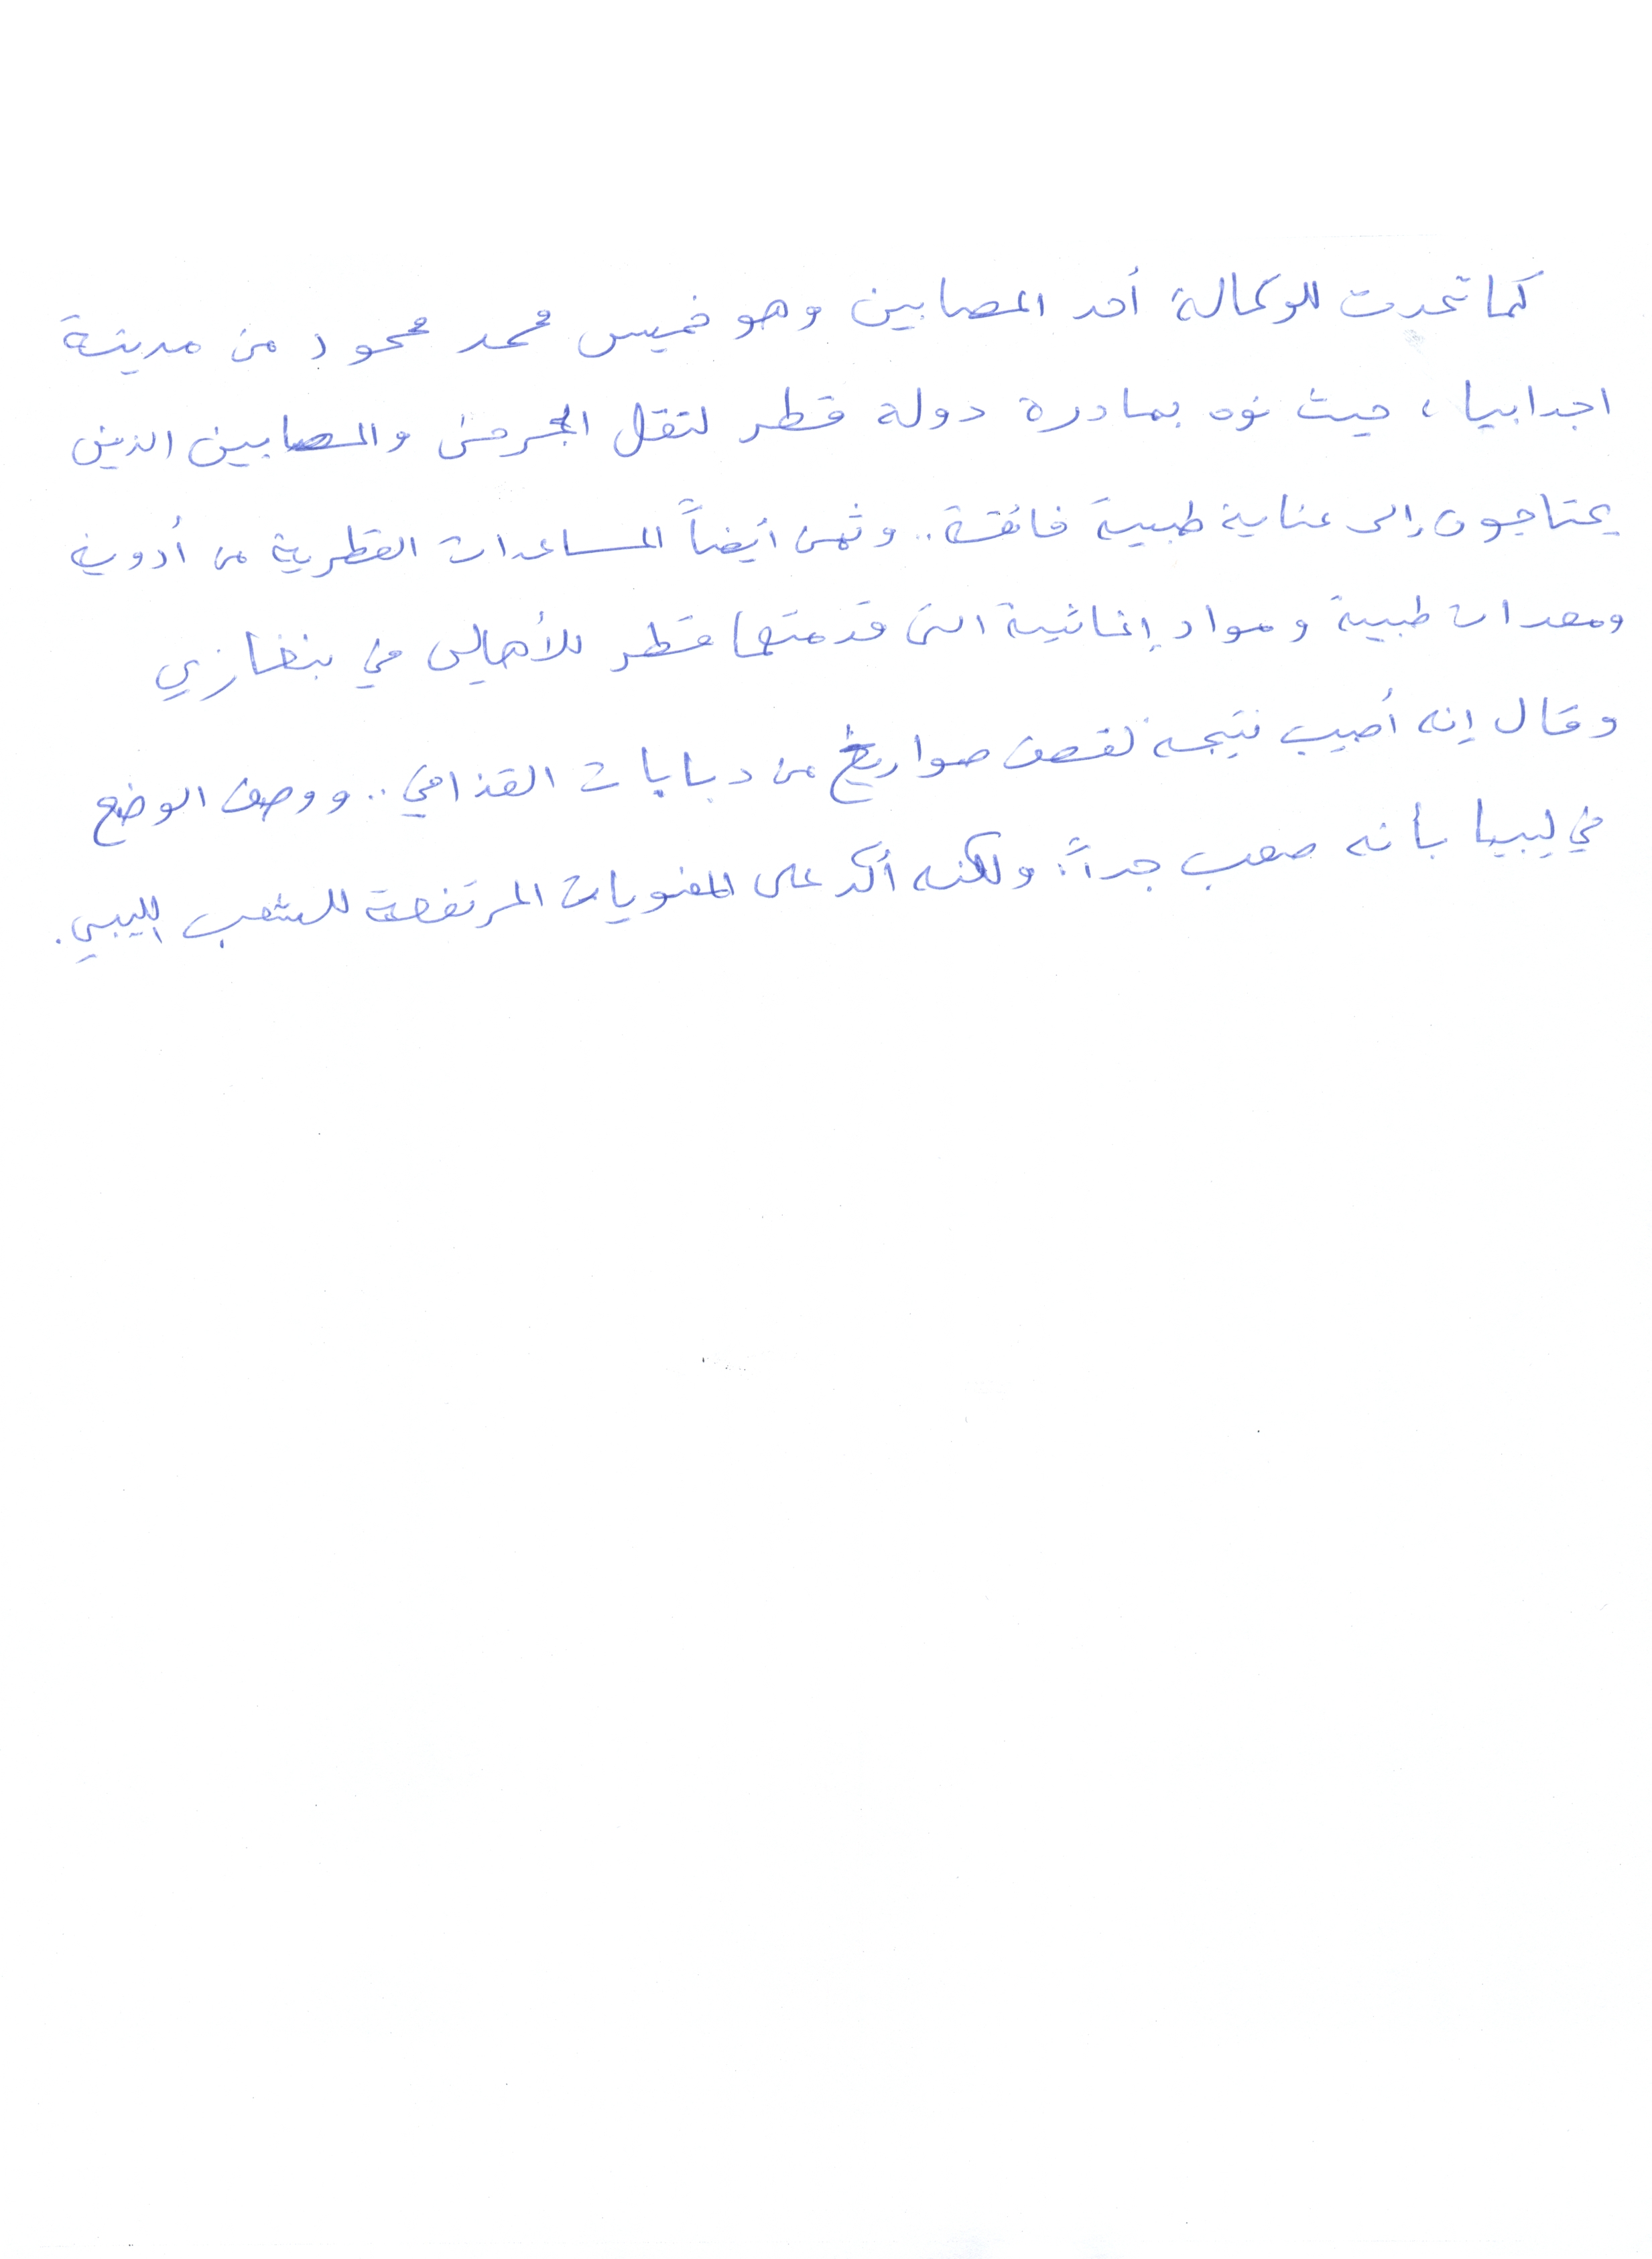 كما تحدث للوكالة أحد المصابين وهو خميس محمد محمود من مدينة
اجدابيا، حيث نوه بمبادرة دولة قطر لنقل الجرحى والمصابين الذين
يحتاجون إلى عناية طبية فائقة.. وثمن أيضاً المساعدات القطرية من أدوية
ومعدات طبية ومواد إغاثية التي قدمتها قطر للأهالي في بنغازي
وقال إنه أصيب نتيجة لقصف صواريخ من دبابات القذافي.. ووصف الوضع
في ليبيا بأنه صعب جداً: ولكنه أكد على المعنويات المرتفعة للشعب الليبي.